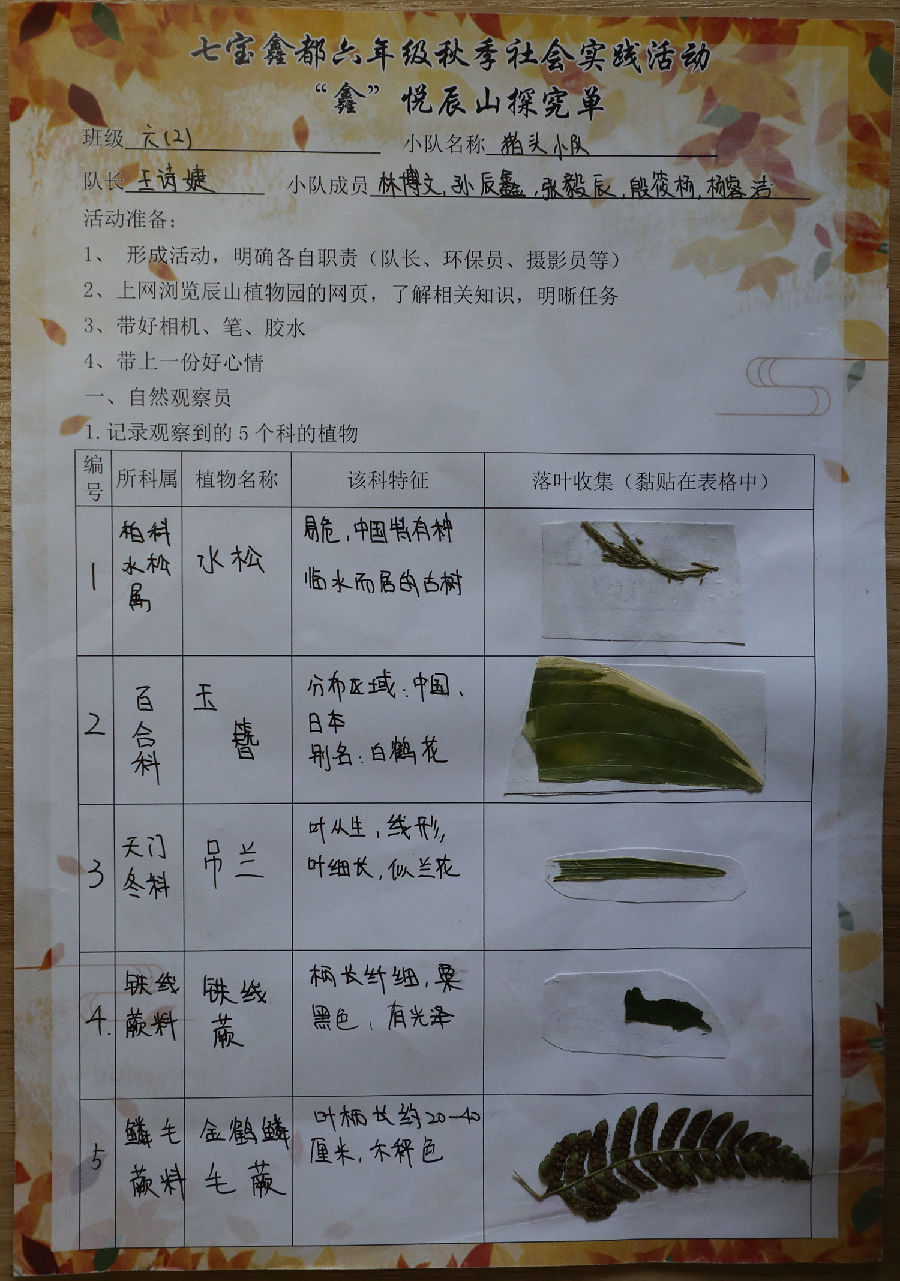 七宝鑫都六年级秋季社会实践活动
“鑫”悦辰山探究单
班级 六(2) 小队名称 猪头小队
队长 王诗婕 小队成员 林博文,孙辰鑫,张毅辰,殷筱杨,杨蓉洁
活动准备：
1、 形成活动，明确各自职责（队长、环保员、摄影员等）
2、上网浏览辰山植物园的网页，了解相关知识，明晰任务
3、带好相机、笔、胶水
4、带上一份好心情
一、自然观察员
1.记录观察到的5个科的植物
编号 所科属 植物名称 该科特征 落叶收集（黏贴在表格中）
1 柏科水松属 水松 易危,中国特有种 临水而居的古树
2 百合科 玉簪 分布区域:中国、日本 别名:白鹤花
3 天门冬科 吊兰 叶从生,线形,叶细长,似兰花
4. 铁线蕨科 铁线蕨 柄长纤细,栗黑色,有光泽
5 鳞毛蕨科 金鹤鳞毛蕨 叶柄长约20—40厘米,禾秆色